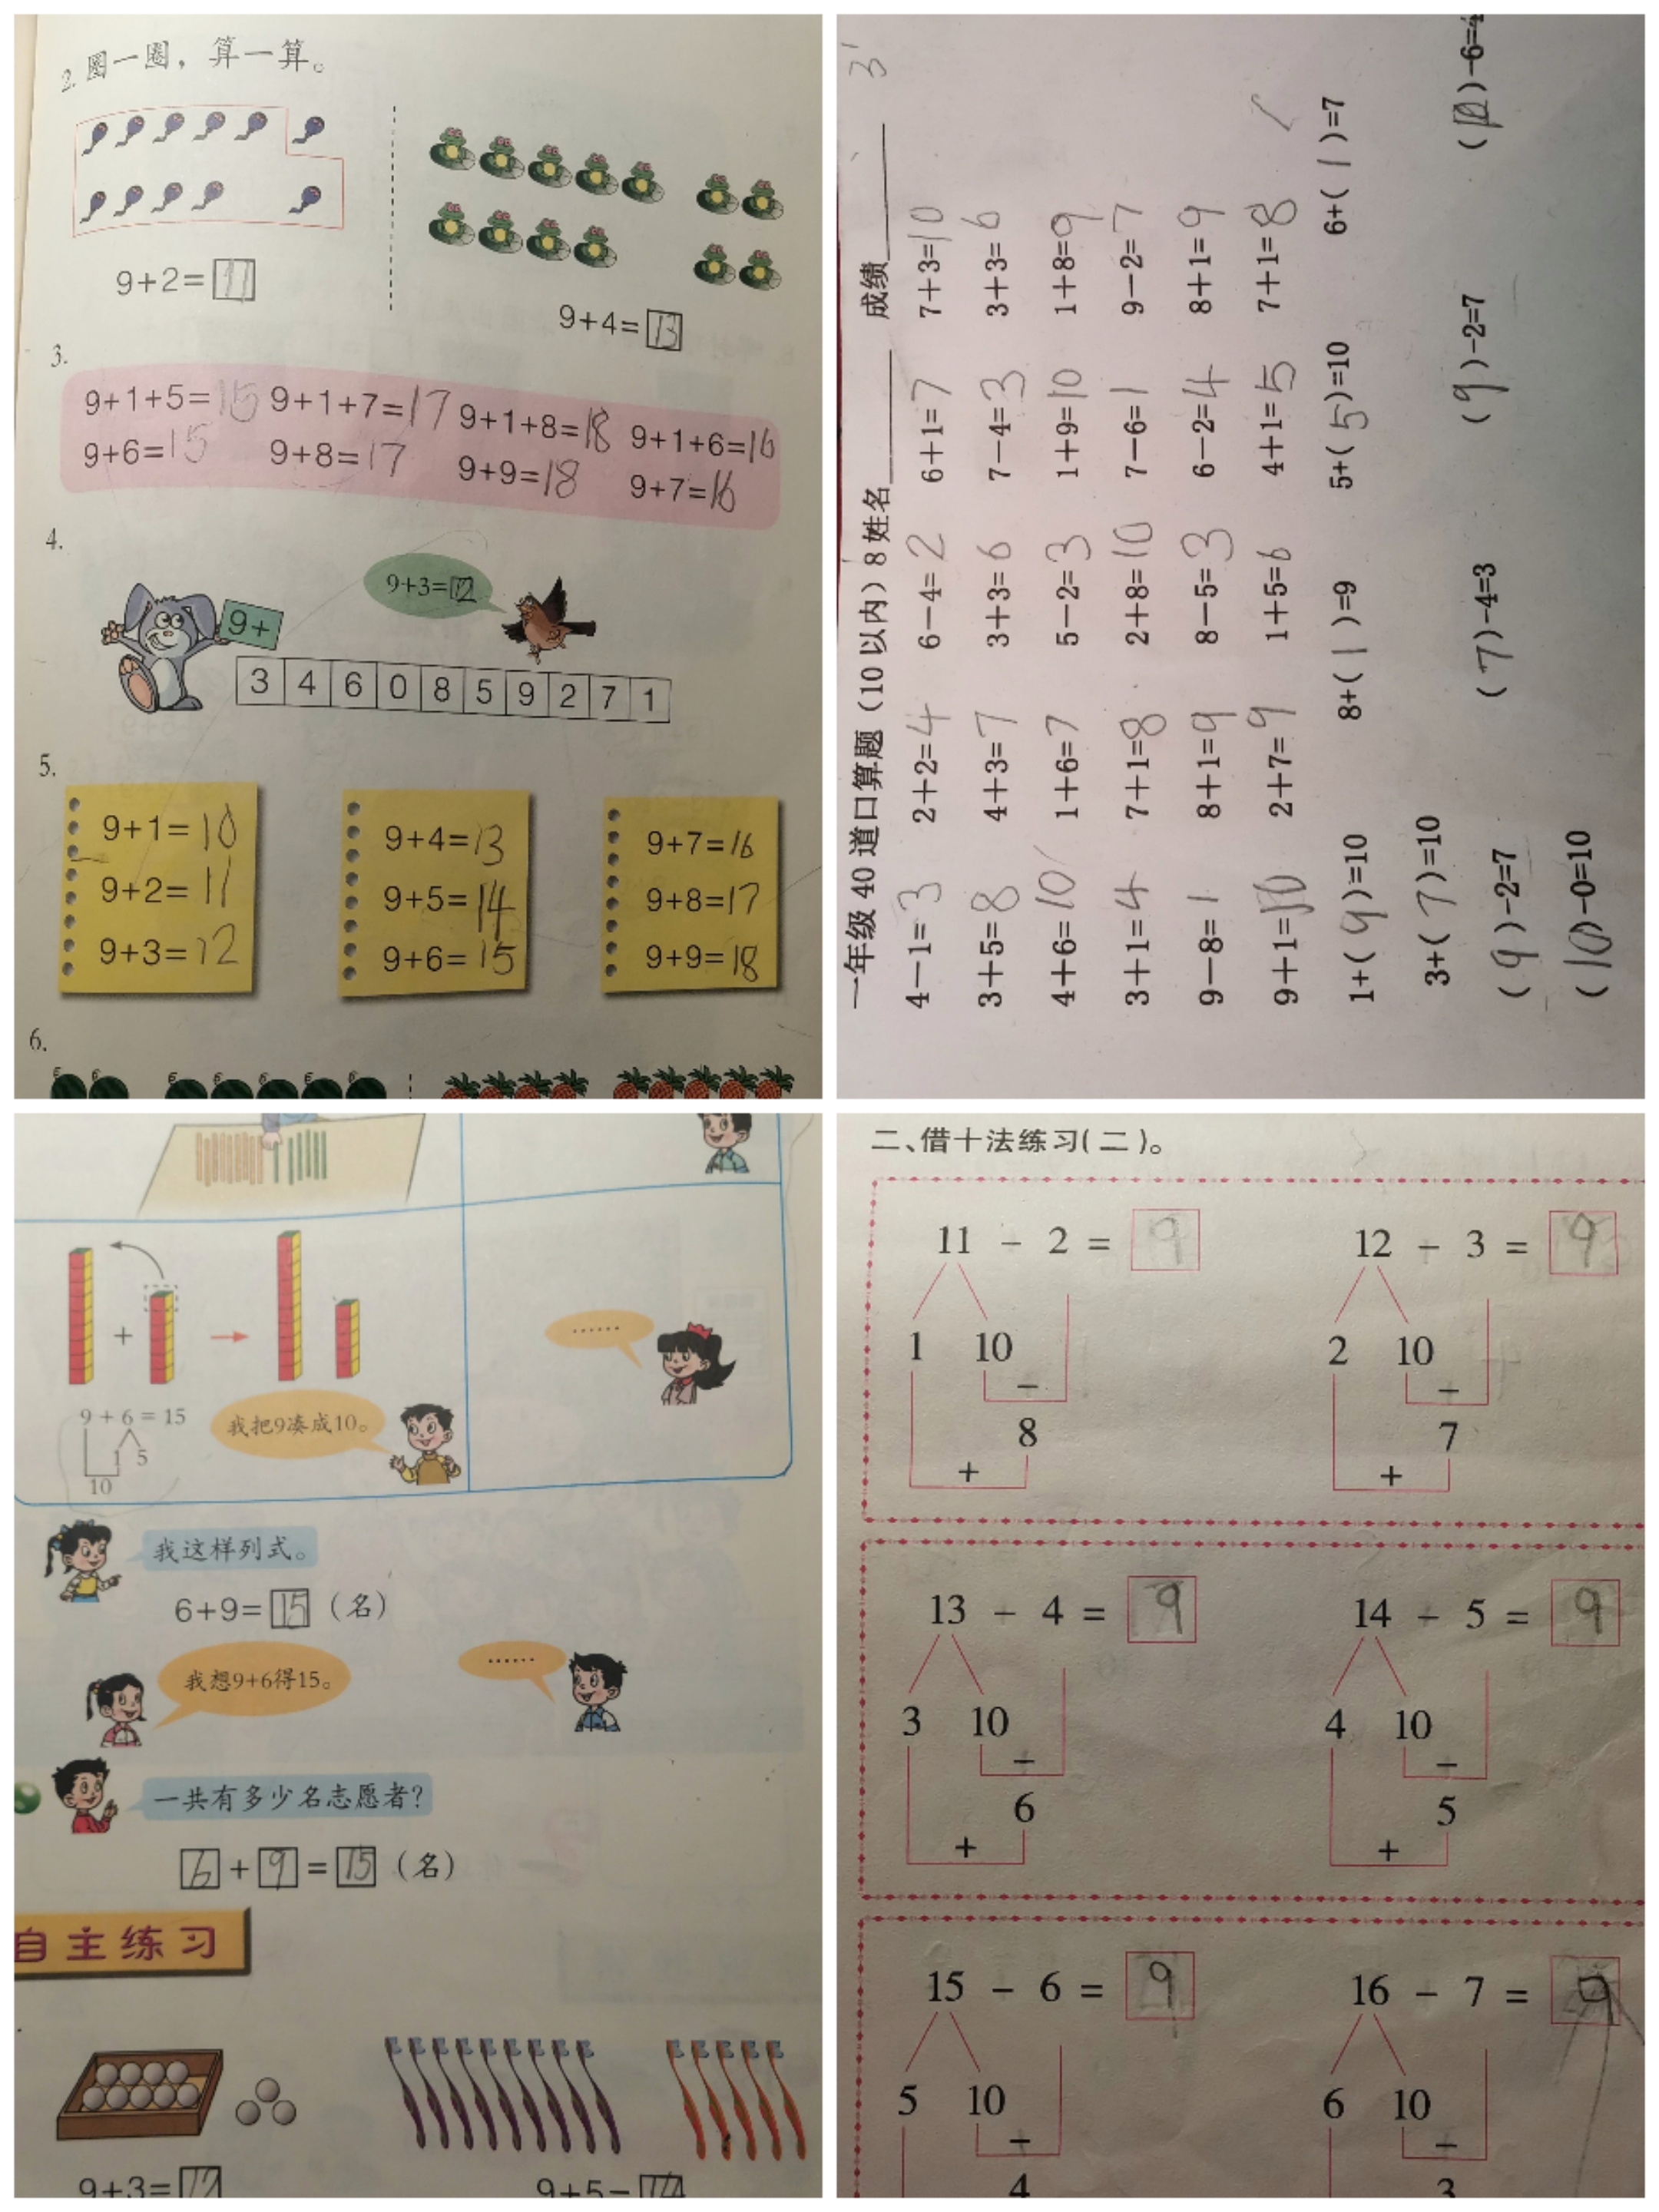 2. 圈一圈，算一算。
9+2=11
9+4=13
3.
9+1+5=15 9+1+7=17 9+1+8=18 9+1+6=16
9+6=15 9+8=17 9+9=18 9+7=16
4.
9+3=12
9+
3 4 6 0 8 5 9 2 7 1
5.
9+1=10 9+4=13 9+7=16
9+2=11 9+5=14 9+8=17
9+3=12 9+6=15 9+9=18
6.
一年级 40 道口算题（10 以内）8 姓名 成绩 3'
4－1=3 2+2=4 6－4=2 6+1=7 7+3=10
3+5=8 4+3=7 3+3=6 7－4=3 3+3=6
4+6=10 1+6=7 5－2=3 1+9=10 1+8=9
3+1=4 7+1=8 2+8=10 7－6=1 9－2=7
9－8=1 8+1=9 8－5=3 6－2=4 8+1=9
9+1=10 2+7=9 1+5=6 4+1=5 7+1=8
1+(9)=10 8+(1)=9 5+(5)=10 6+(1)=7
3+(7)=10
(9)-2=7 (7)-4=3 (9)-2=7 (10)-6=4
(10)-0=10
+
9+6=15
1 5
10
我把9凑成10。
……
我这样列式。
6+9=15（名）
我想9+6得15。
……
一共有多少名志愿者?
6+9=15（名）
自主练习
9+3=12 9+5=14
二、借十法练习(二)。
11 － 2 = 9 12 － 3 = 9
1 10 2 10
－ －
8 7
+ +
13 － 4 = 9 14 － 5 = 9
3 10 4 10
－ －
6 5
+ +
15 － 6 = 9 16 － 7 = 9
5 10 6 10
－ －
4 3